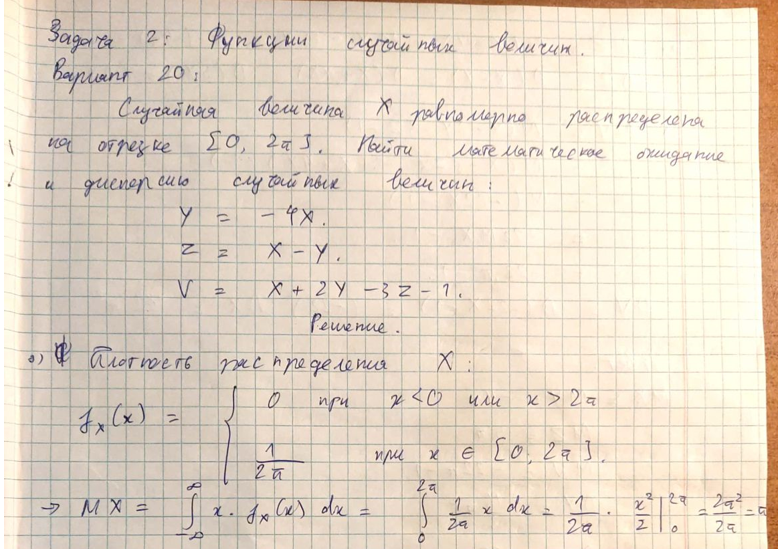 Задача 2: Функции случайных величин.
Вариант 20:
Случайная величина X равномерно распределена
на отрезке [0, 2a]. Найти математическое ожидание
и дисперсию случайных величин:
Y = -4X.
Z = X - Y.
V = X + 2Y - 3Z - 1.
Решение.
0) Плотность распределения X:
f_X(x) = { 0 при x<0 или x>2a
1/2a при x ∈ [0, 2a].
→ MX = ∫_{-∞}^{∞} x · f_X(x) dx = ∫_0^{2a} 1/2a x dx = 1/2a · x²/2 |_0^{2a} = 2a²/2a = a